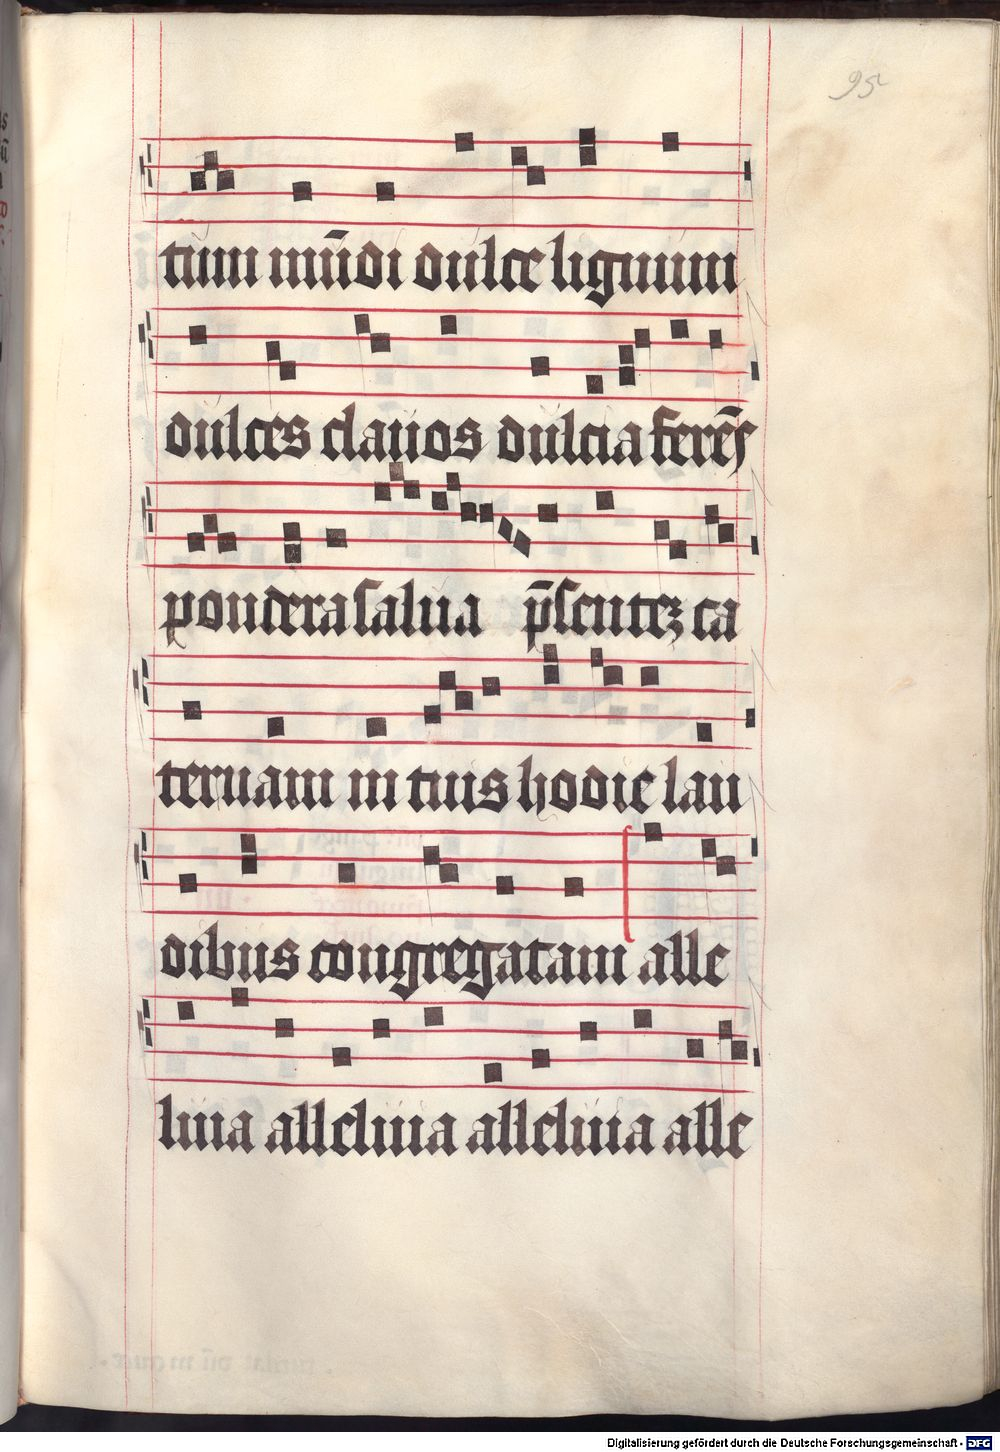 95
tum mūdi dulce lignum
dulces clauos dulcia ferēs
pondera salua p̄sentez ca
teruam in tuis hodie lau
dibus congregatam alle
luia alleluia alleluia alle
Digitalisierung gefördert durch die Deutsche Forschungsgemeinschaft - DFG